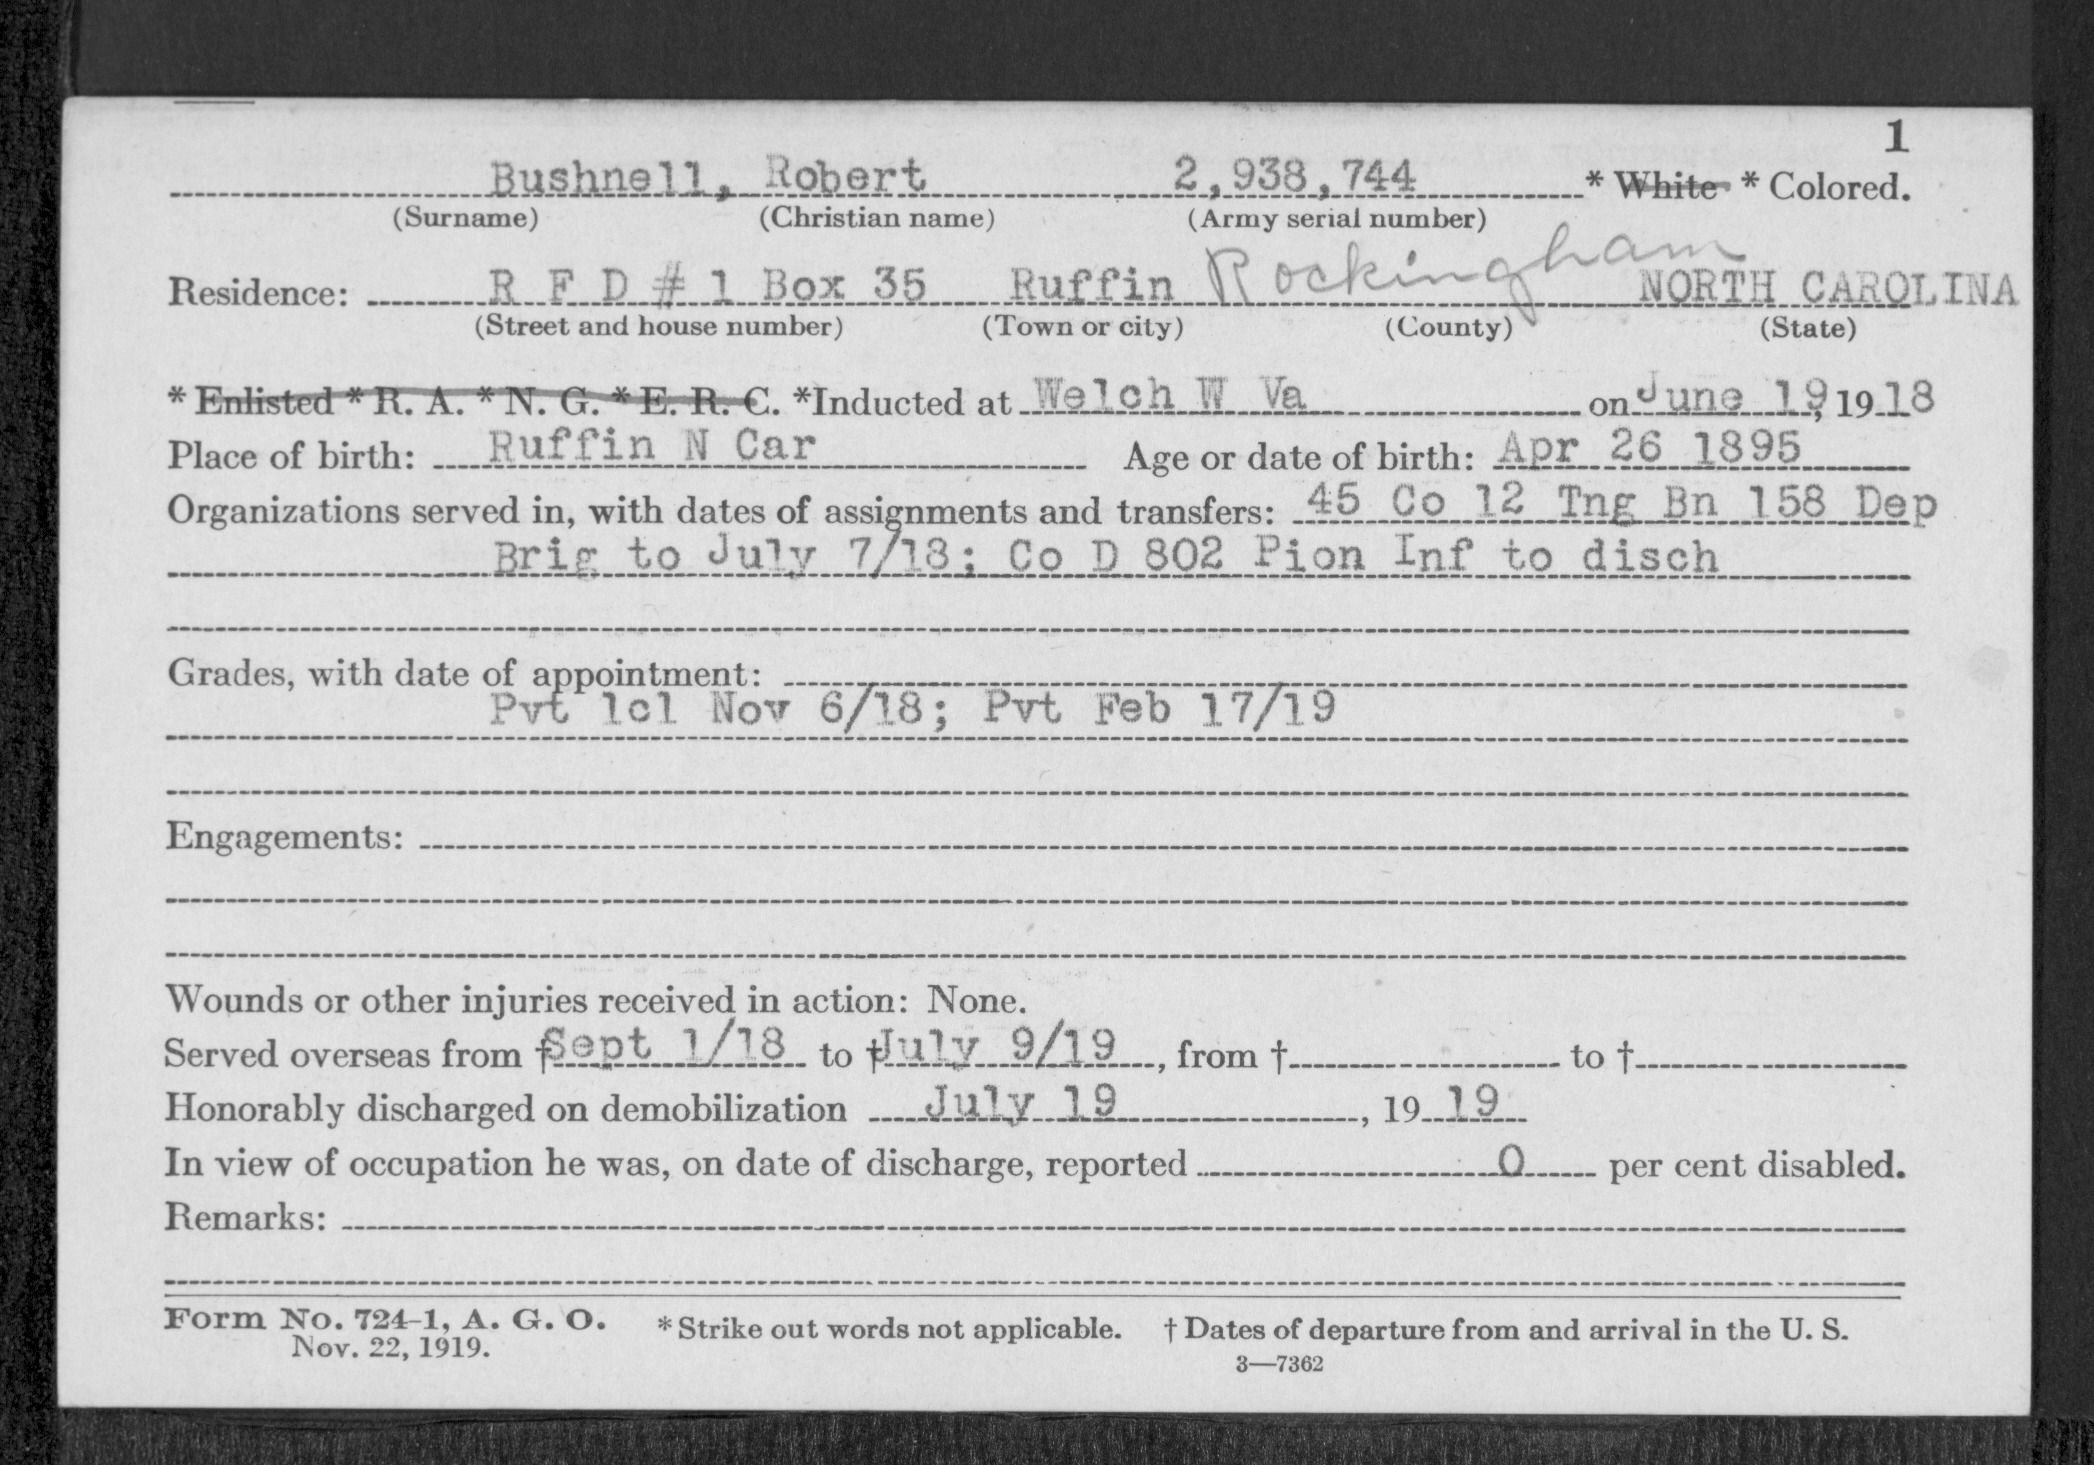 1
Bushnell, Robert 2,938,744 * White * Colored.
(Surname) (Christian name) (Army serial number)
Residence: R F D # 1 Box 35 Ruffin Rockingham NORTH CAROLINA
(Street and house number) (Town or city) (County) (State)
* Enlisted * R. A. * N. G. * E. R. C. *Inducted at Welch W Va on June 19, 1918
Place of birth: Ruffin N Car Age or date of birth: Apr 26 1895
Organizations served in, with dates of assignments and transfers: 45 Co 12 Tng Bn 158 Dep
Brig to July 7/18; Co D 802 Pion Inf to disch
Grades, with date of appointment:
Pvt 1cl Nov 6/18; Pvt Feb 17/19
Engagements:
Wounds or other injuries received in action: None.
Served overseas from † Sept 1/18 to † July 9/19, from † to †
Honorably discharged on demobilization July 19, 1919
In view of occupation he was, on date of discharge, reported 0 per cent disabled.
Remarks:
Form No. 724-1, A. G. O. * Strike out words not applicable. † Dates of departure from and arrival in the U. S.
Nov. 22, 1919.
3—7362